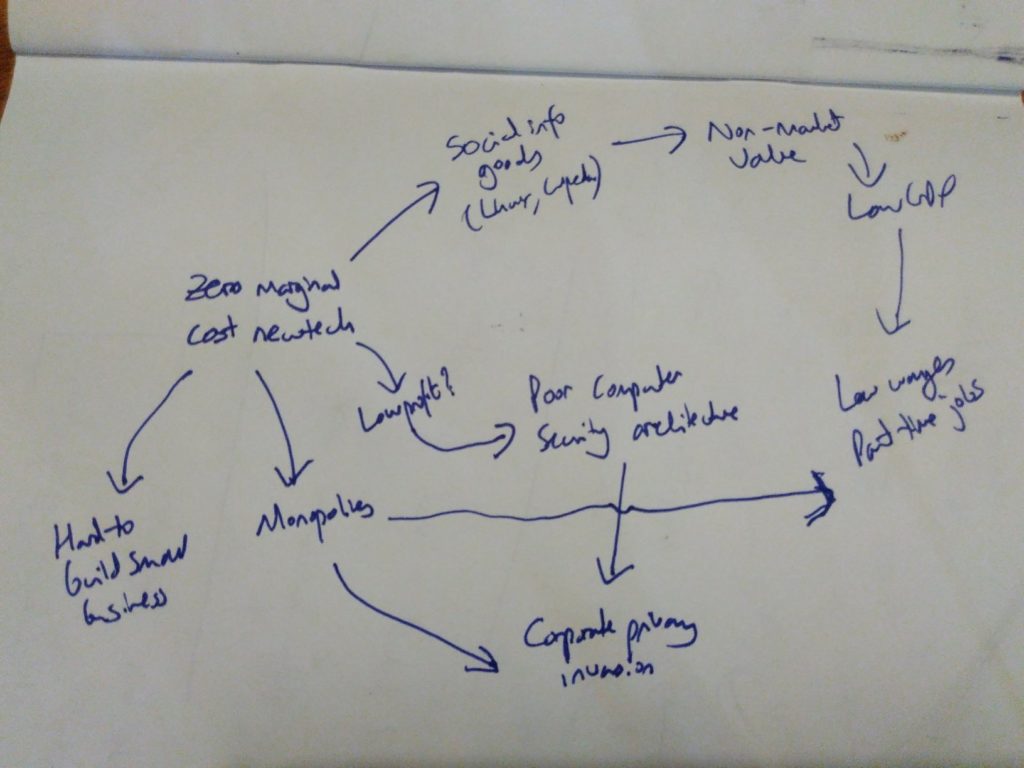 Social info
goods
(Linux, Wikipedia)
Non-market
value
Low GDP
Zero marginal
cost newtech
Low profit?
Poor Computer
Security architecture
Low wages
Part-time jobs
Hard to
build small
business
Monopolies
Corporate privacy
invasion